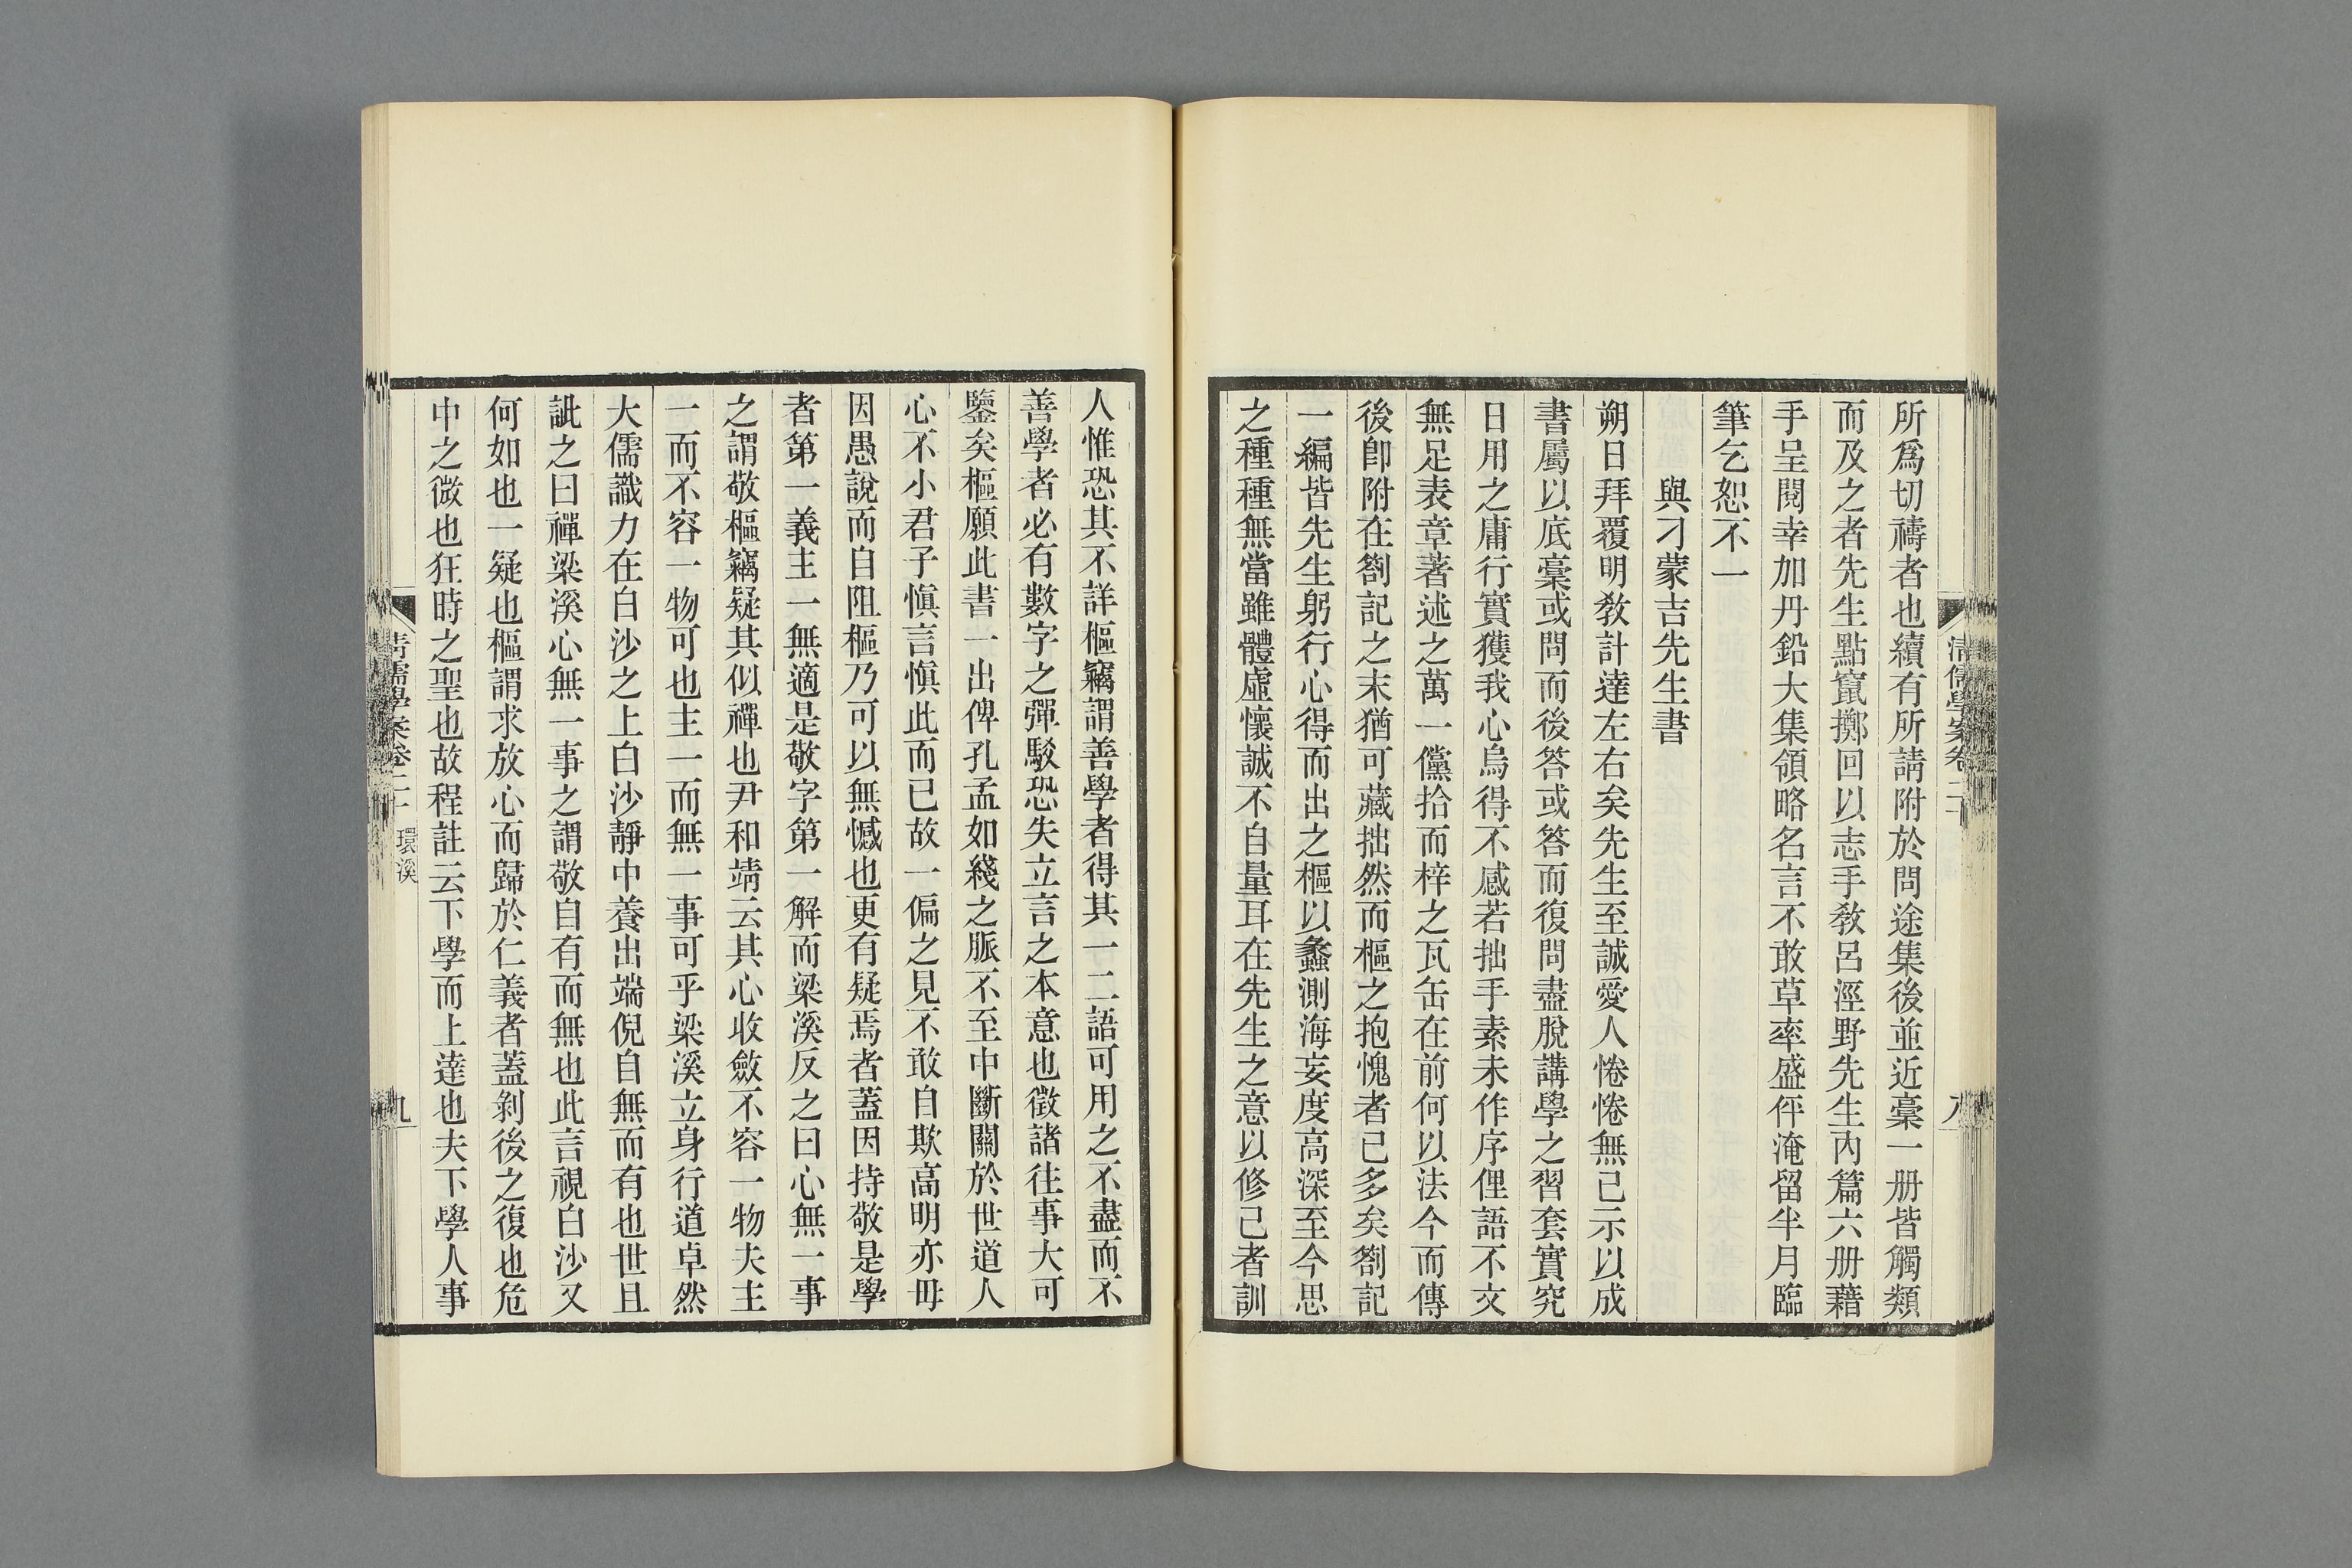 清儒學案卷二十
八
所爲切禱者也續有所請附於問途集後並近稾一册皆觸類
而及之者先生點竄擲回以志手敎呂涇野先生內篇六册藉
手呈閱幸加丹鉛大集領略名言不敢草率盛伻淹留半月臨
筆乞恕不一
與刁蒙吉先生書
朔日拜覆明敎計達左右矣先生至誠愛人惓惓無已示以成
書屬以底稾或問而後答或答而復問盡脫講學之習套實究
日用之庸行實獲我心烏得不感若拙手素未作序俚語不文
無足表章著述之萬一儻拾而梓之瓦缶在前何以法今而傳
後卽附在劄記之末猶可藏拙然而樞之抱愧者已多矣劄記
一編皆先生躬行心得而出之樞以蠡測海妄度高深至今思
之種種無當雖體虛懷誠不自量耳在先生之意以修己者訓
人惟恐其不詳樞竊謂善學者得其一二語可用之不盡而不
善學者必有數字之彈駁恐失立言之本意也徵諸往事大可
鑒矣樞願此書一出俾孔孟如綫之脈不至中斷關於世道人
心不小君子愼言愼此而已故一偏之見不敢自欺高明亦毋
因愚說而自阻樞乃可以無憾也更有疑焉者蓋因持敬是學
者第一義主一無適是敬字第一解而梁溪反之曰心無一事
之謂敬樞竊疑其似禪也尹和靖云其心收斂不容一物夫主
一而不容一物可也主一而無一事可乎梁溪立身行道卓然
大儒識力在白沙之上白沙靜中養出端倪自無而有也世且
訿之曰禪梁溪心無一事之謂敬自有而無也此言視白沙又
何如也一疑也樞謂求放心而歸於仁義者蓋剝後之復也危
中之微也狂時之聖也故程註云下學而上達也夫下學人事
清儒學案卷二十
環溪
九